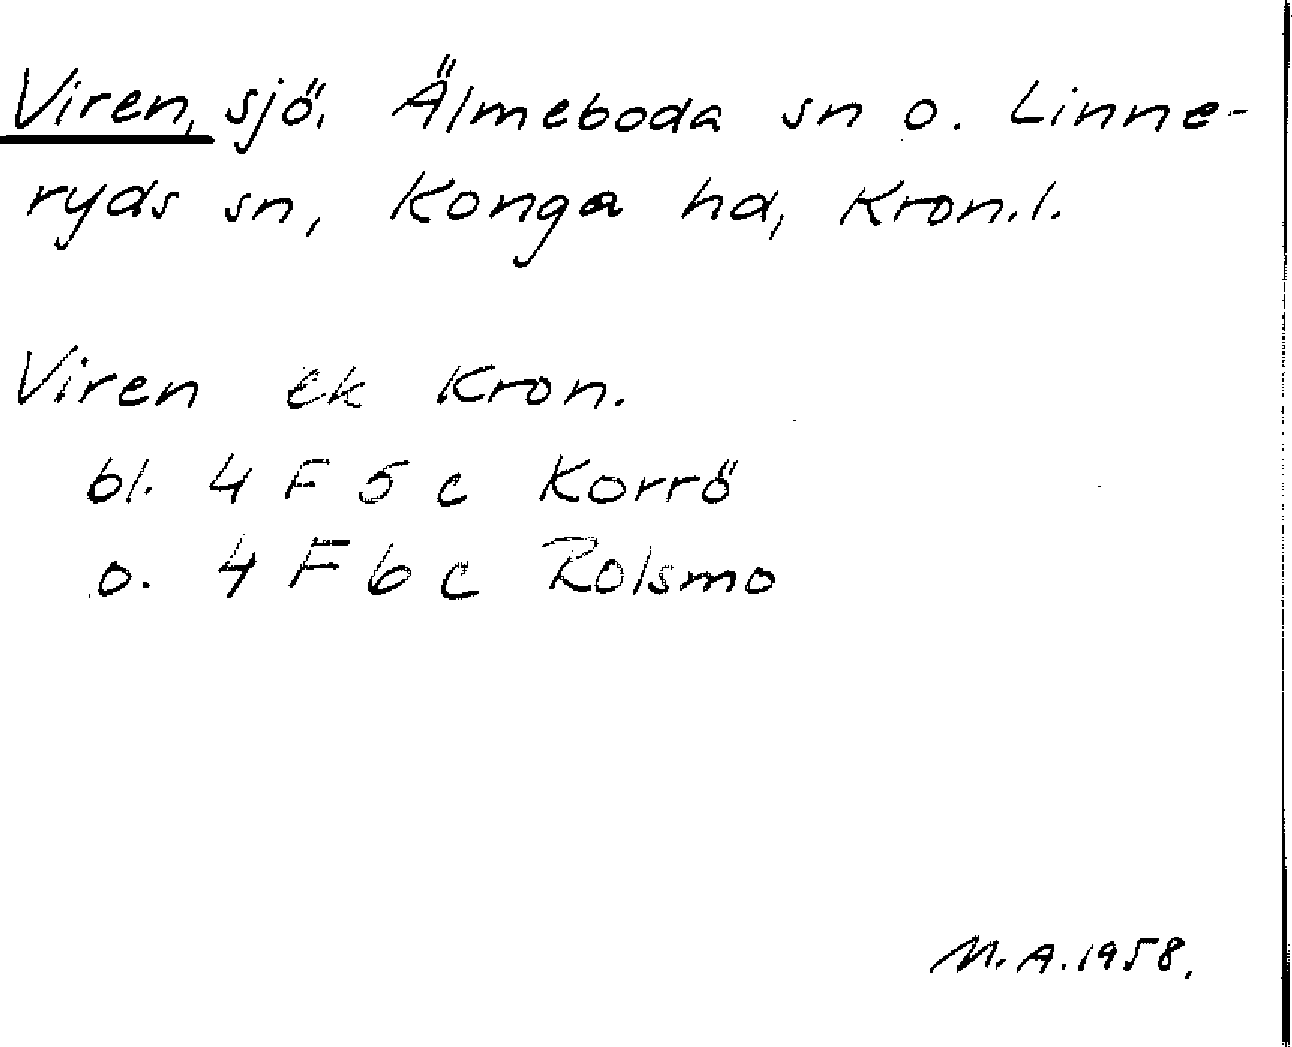 Viren, sjö. Älmeboda sn o. Linne-
ryds sn, Konga hd, Kron.l.
Viren ek Kron.
bl. 4 F 5 c Korrö
o. 4 F 6 c Rolsmo
M.A.1958.